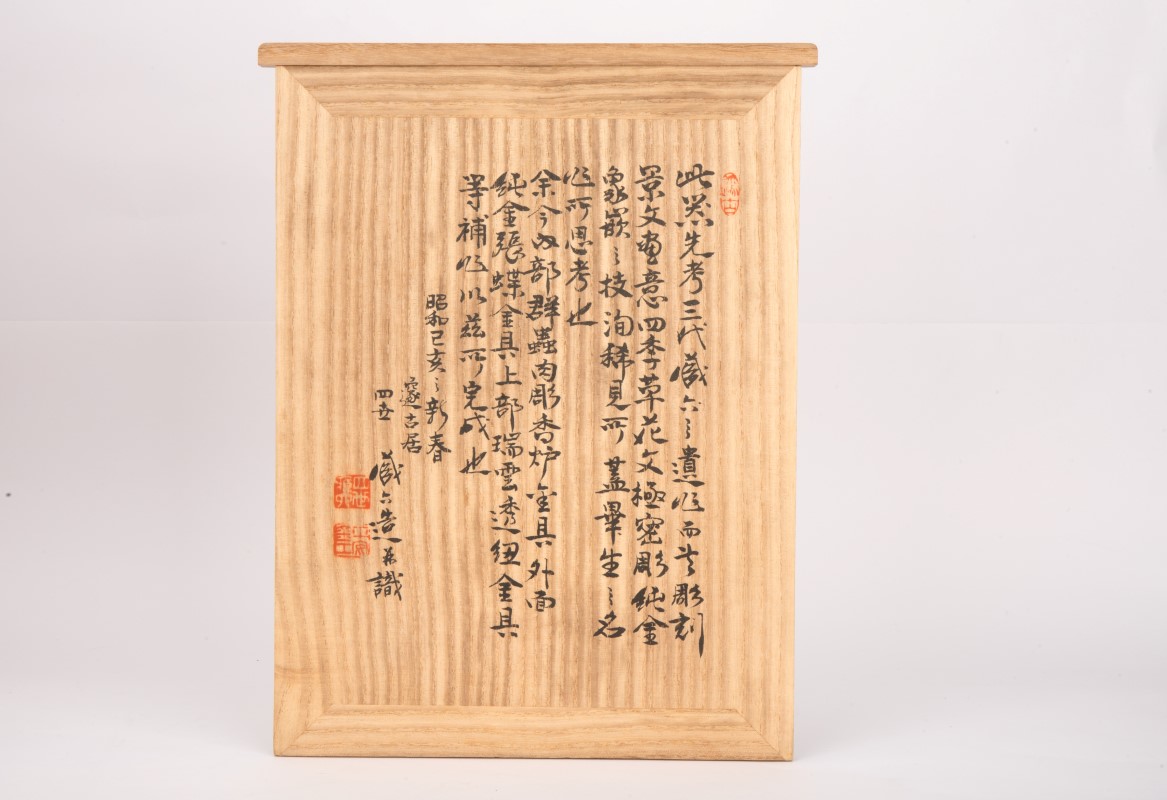 此器先考三代蔵六之遺作而其彫刻
景文画意四季草花文極密彫純金
象嵌之技洵稀見所蓋畢生之名
作所思考也
余今内部群蟲肉彫香炉金具外面
純金張蝶金具上部瑞雲透紐金具
等補作以茲所完成也
昭和己亥之新春
邃古居
四世 蔵六造并識